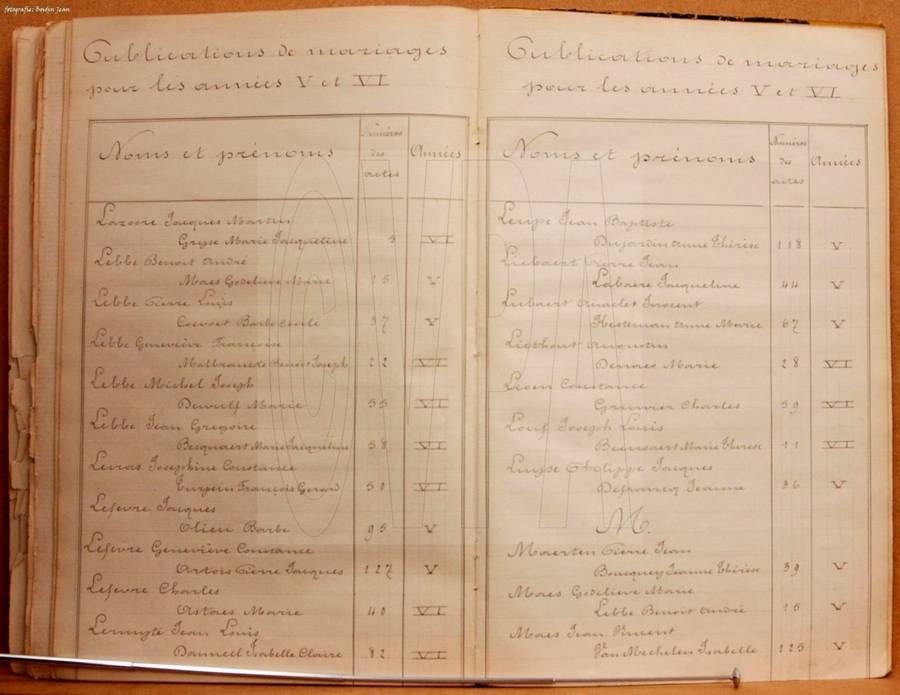 fotografie: Boidyn Jean
Publications de mariages
pour les années V et VI
Noms et prénoms
Numéros
des
actes
Années
Jacques Martin
Marie Jacqueline 3 VI
Lebbe Benoit André
Maes Godelieve Marie 15 V
Lebbe Pierre Louis
Coevoet Barbe Cécile 37 V
Lebbe Geneviève Françoise
Joseph 22 VI
Lebbe Michel Joseph
Dewulf Marie 35 VI
Lebbe Jean Grégoire
Becquaert Marie Jacqueline 38 VI
Josephine Constance
Turpein François Gerard 30 VI
Lefevre Jacques
Olieu Barbe 95 V
Lefevre Geneviève Constance
Artois Pierre Jacques 127 V
Lefevre Charles
Astaes Marie 40 VI
Jean Louis
Isabelle Claire 82 VI
Publications de mariages
pour les années V et VI
Noms et prénoms
Numéros
des
actes
Années
Leupe Jean Baptiste
Dujardin Anne Thérèse 118 V
Liebaert Pierre Jean
Labaere Jacqueline 44 V
Liebaert Innocent
Anne Marie 67 V
Ligthout Augustin
Marie 28 VI
Constance
Charles 39 VI
Louf Joseph Louis
Marie Therese 11 VI
Philippe Jacques
Defrancq Jeanne 36 V
M.
Maerten Pierre Jean
Boucquey Jeanne Thérèse 39 V
Maes Godelieve Marie
Lebbe Benoit André 15 V
Maes Jean Vincent
Van Mechelen Isabelle 125 V